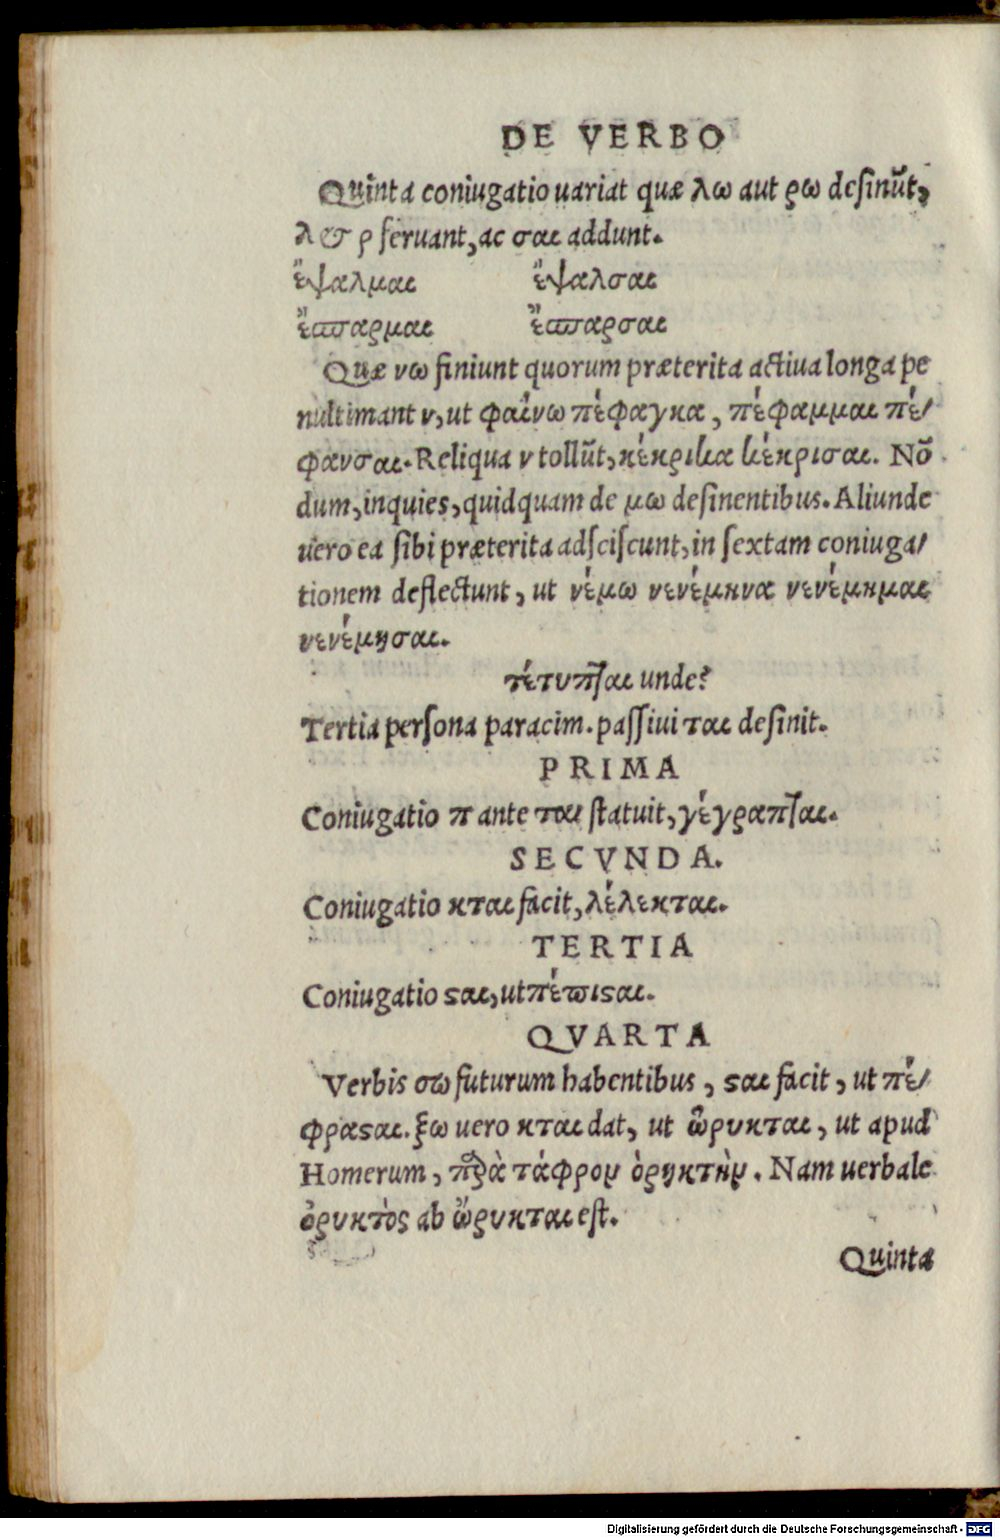 DE VERBO
Quinta coniugatio uariat quæ λω aut ρω desinũt,
λ & ρ seruant, ac σαι addunt.
ἔψαλμαι ἔψαλσαι
ἔσπαρμαι ἔσπαρσαι
Quæ νω finiunt quorum præterita actiua longa pe
nultimant ν, ut φαίνω πέφαγκα, πέφαμμαι πέ/
φανσαι. Reliqua ν tollũt, κέκρικα κέκρισαι. Nõ
dum, inquies, quidquam de μω desinentibus. Aliunde
uero ea sibi præterita adsciscunt, in sextam coniuga/
tionem deflectunt, ut νέμω νενέμηκα νενέμημαι
νενέμησαι.
τέτυπται unde?
Tertia persona paracim. passiui ται desinit.
PRIMA
Coniugatio π ante ται statuit, γέγραπται.
SECVNDA.
Coniugatio κται facit, λέλεκται.
TERTIA
Coniugatio ϛαι, ut πέπιϛαι.
QVARTA
Verbis σω futurum habentibus, ϛαι facit, ut πέ/
φραϛαι. ξω uero κται dat, ut ὤρυκται, ut apud
Homerum, παρὰ τάφρον ὀρηκτὴν. Nam uerbale
ὀρυκτὸς ab ὤρυκται est.
Quinta
Digitalisierung gefördert durch die Deutsche Forschungsgemeinschaft - DFG